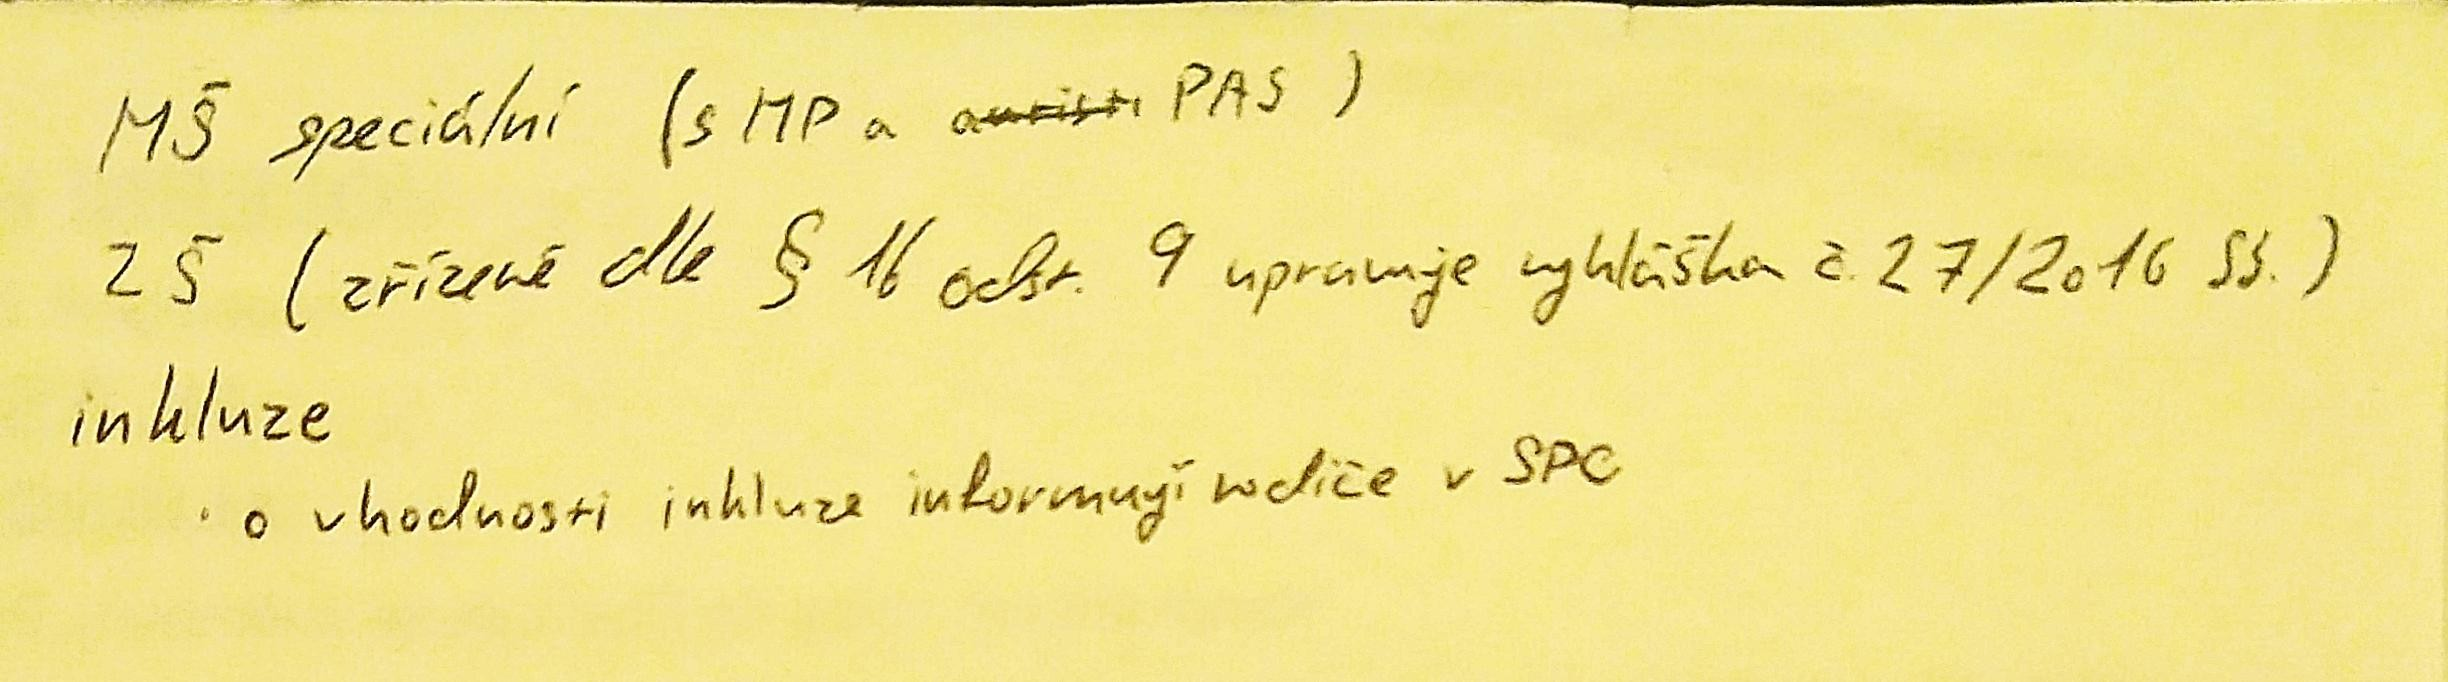 MŠ speciální (s MP a autisti PAS)
ZŠ (zřízené dle § 16 odst. 9 upravuje vyhláška č. 27/2016 Sb.)
inkluze
· o vhodnosti inkluze informují rodiče v SPC